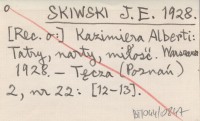 o
SKIWSKI J. E. 1928.
[Rec. o:] Kazimiera Alberti:
Tatry, narty, miłość. Warszawa
1928. – Tęcza (Poznań)
2, nr 22: [12–13].